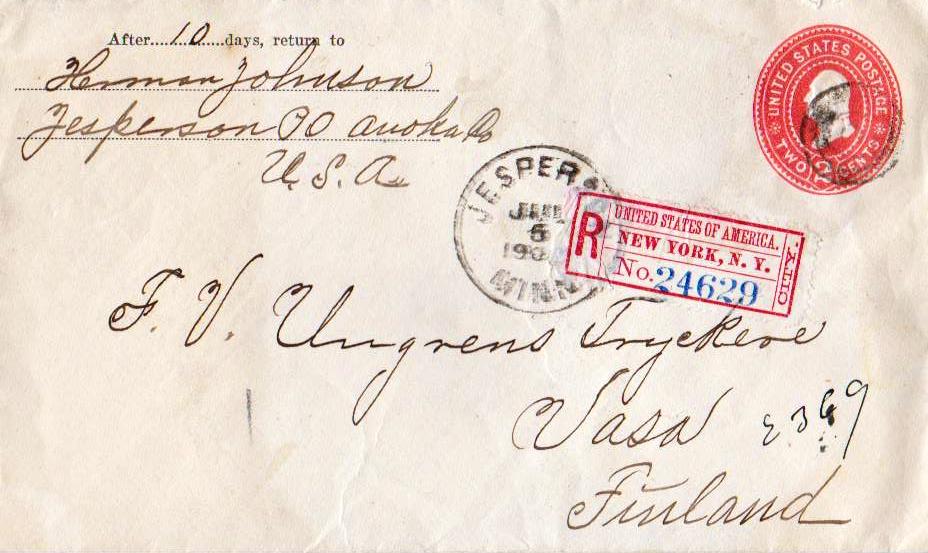 After....10....days, return to
Herman Johnson
Jesperson PO Anoka Co
U.S.A.
UNITED STATES POSTAGE
TWO CENTS
JESPER
JAN
6
190
MINN
R
UNITED STATES OF AMERICA.
NEW YORK, N. Y.
No. 24629
F. V. Ungrens Tryckere
Vasa
Finland